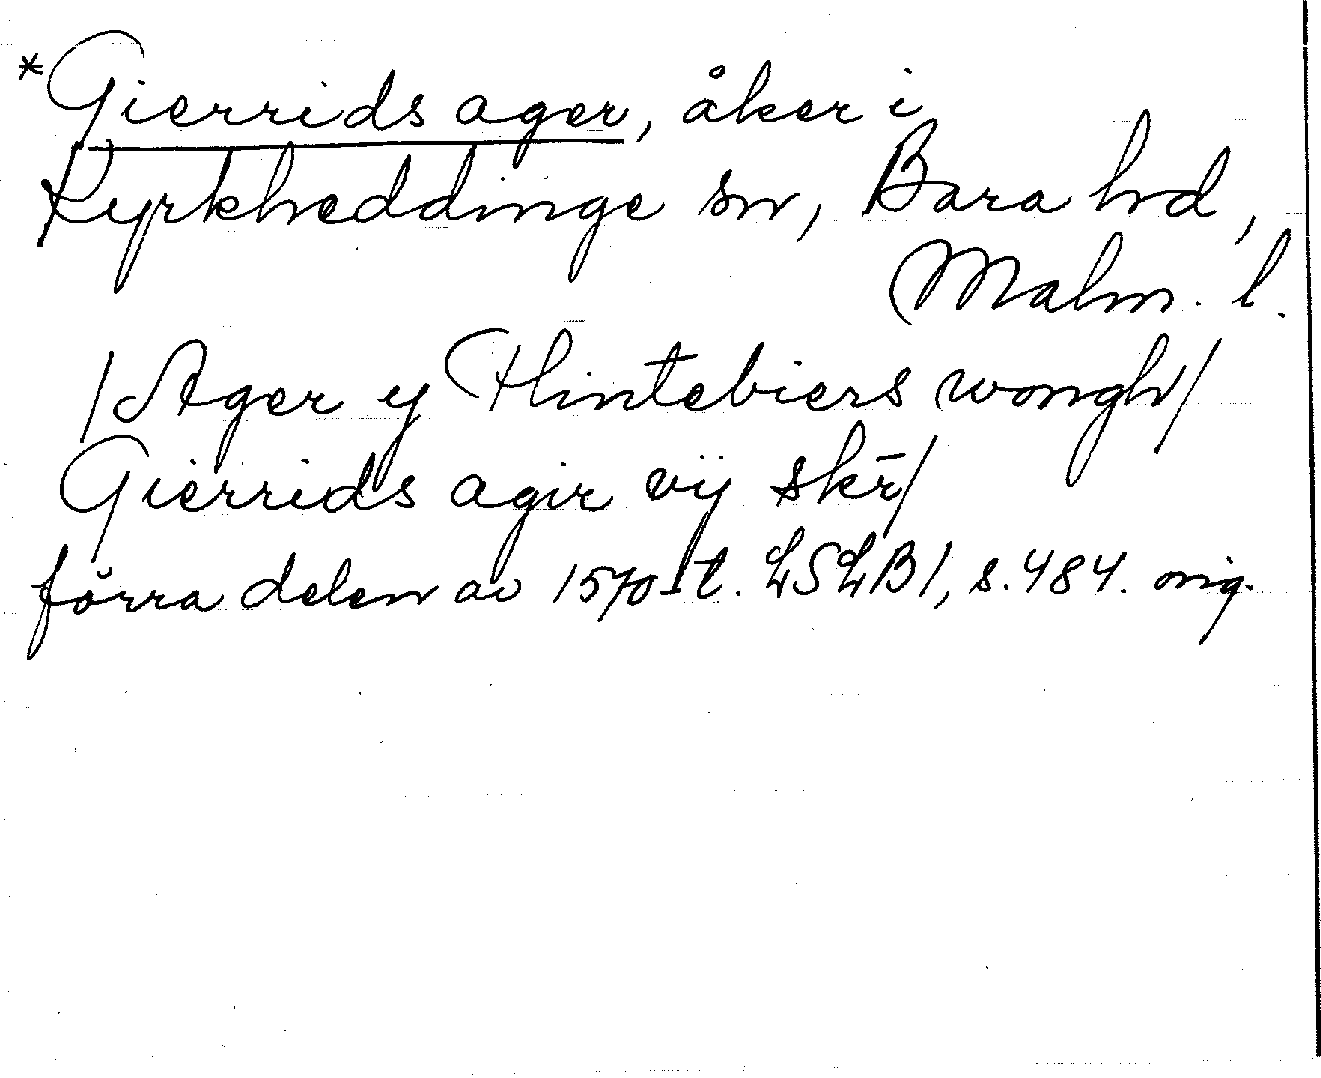 *Gierrids ager, åker i
Kyrkheddinge sn, Bara hd,
Malm. l.
/Ager y Hintebiers wongh/
Gierrids agir vij skr̄/
förra delen av 1570-t. LSLB1, s. 484. orig.